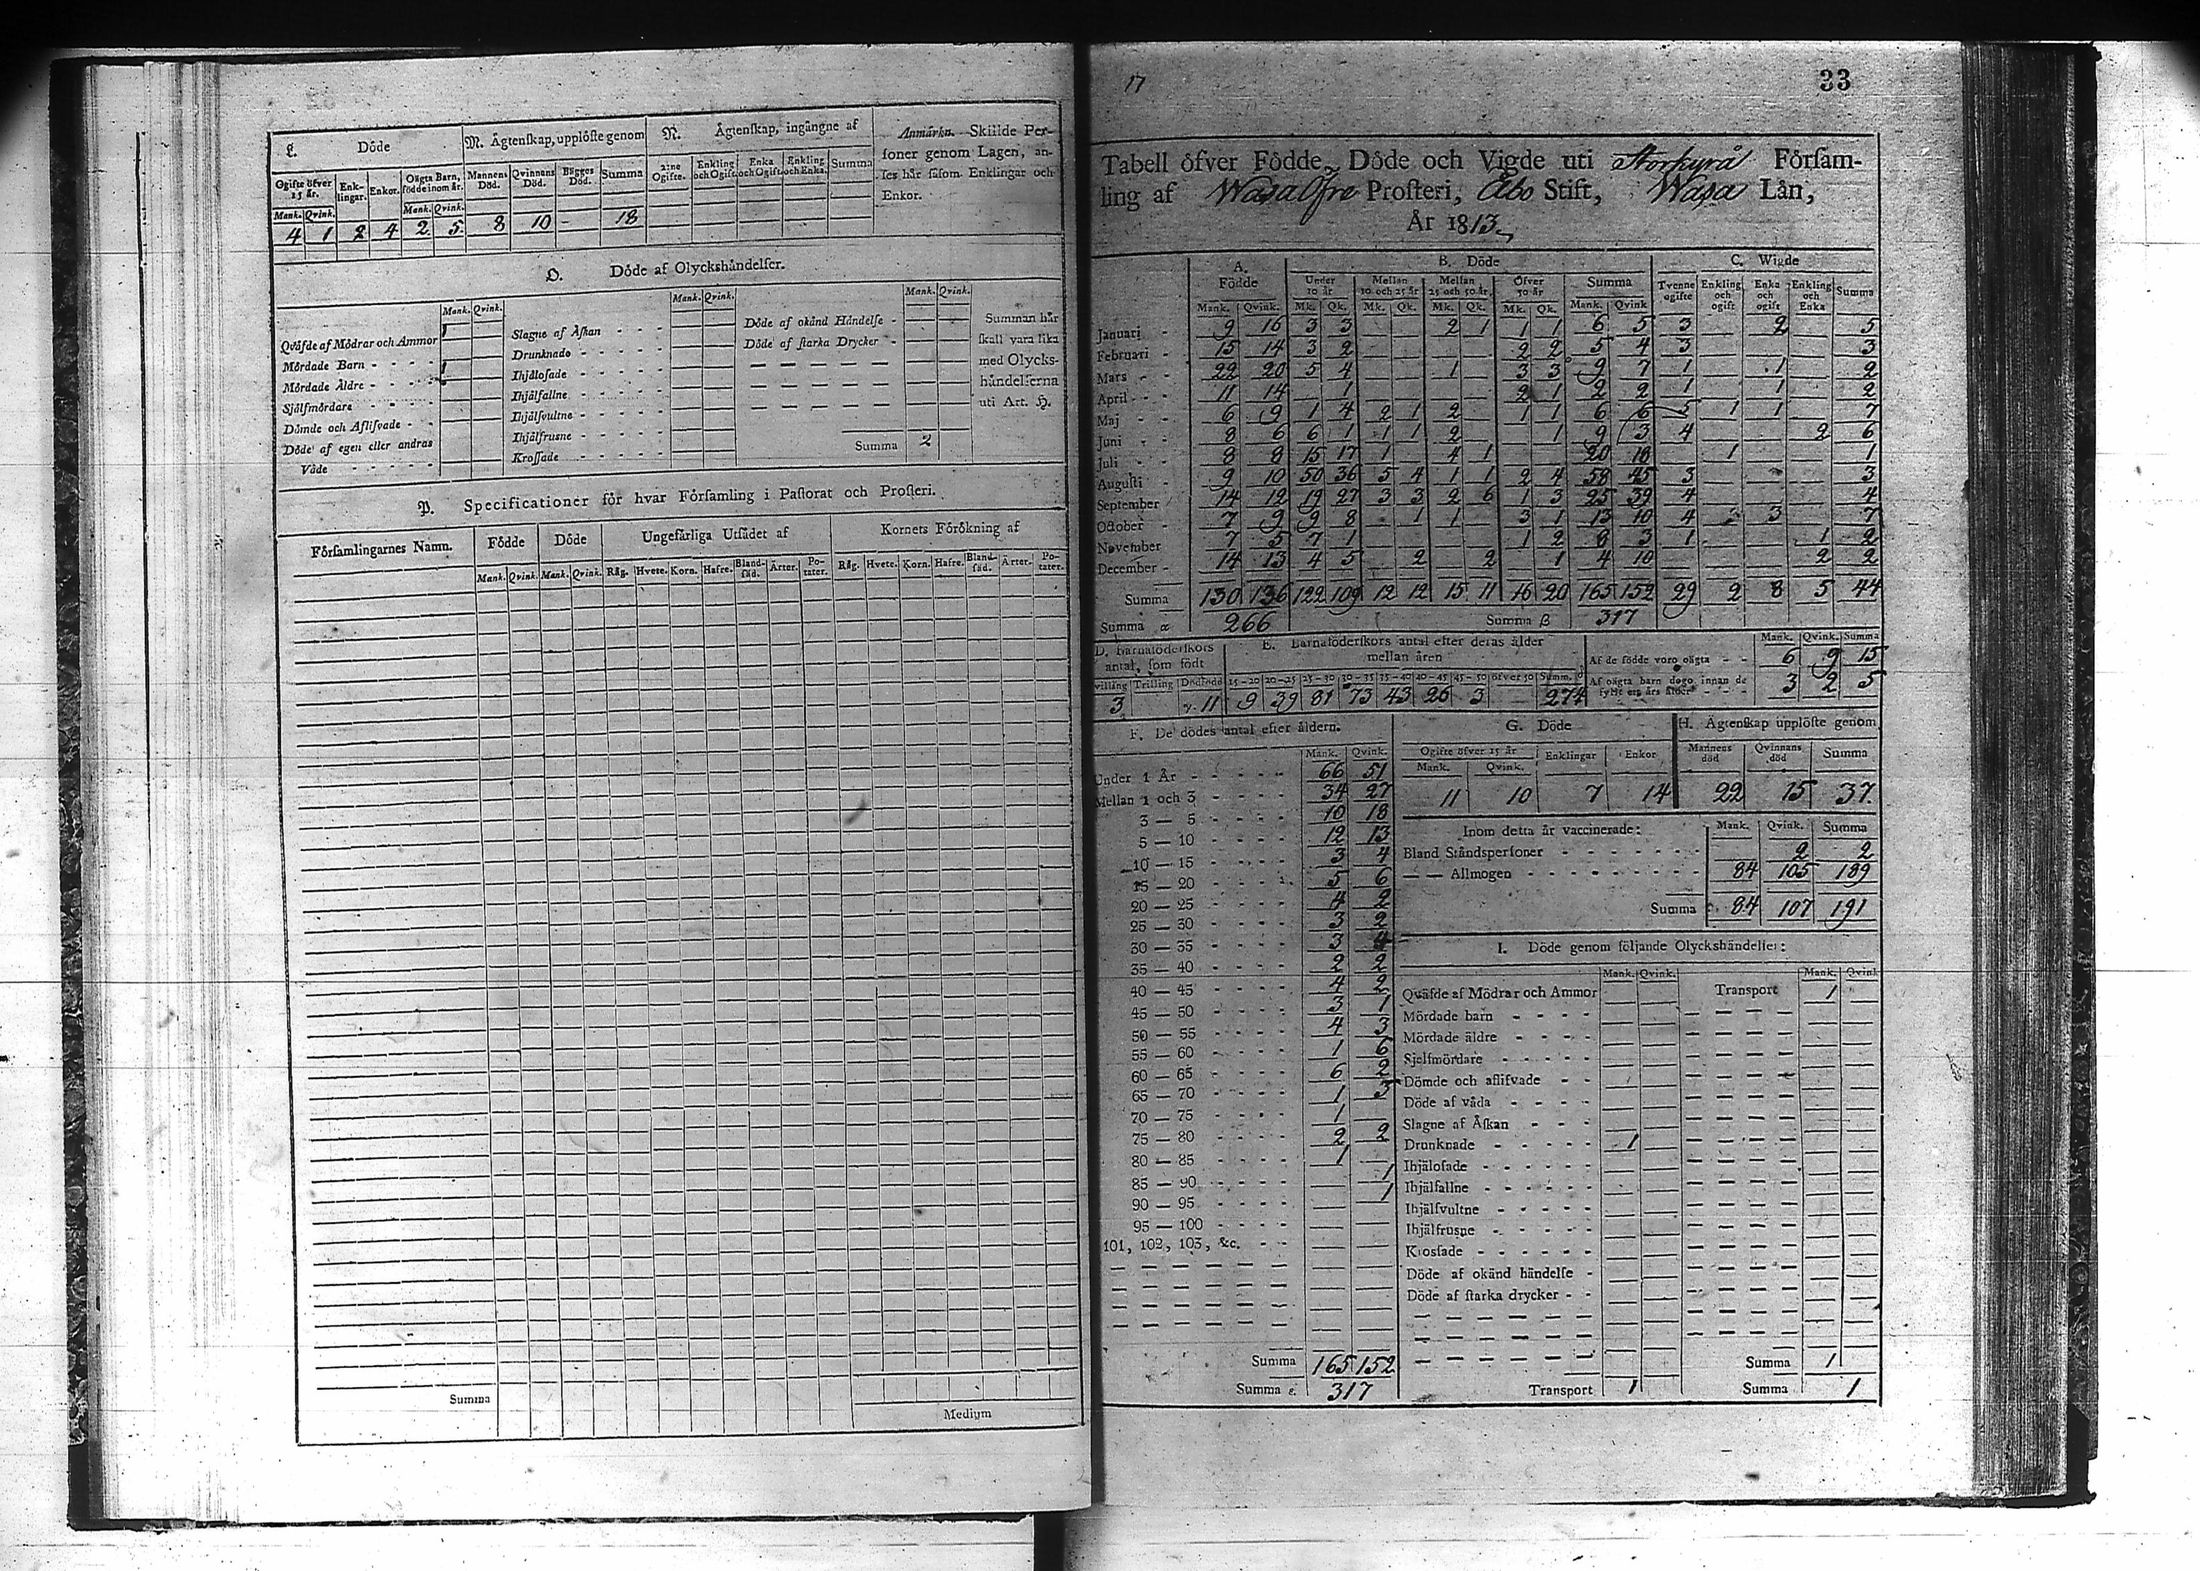 L. Döde
M. Ägtenskap, upplöste genom
N. Ägtenskap, ingångne af
Anmärkn. Skillde Personer genom Lagen, anses här såsom Enklingar och Enkor.
Ogifte öfver 15 år. Enklingar. Enkor. Oägta Barn, födde inom år. Mannens Död. Qvinnans Död. Bägges Död. Summa 2:ne Ogifte. Enkling och Ogift. Enka och Ogift. Enkling och Enka. Summa
Mank. Qvink. Mank. Qvink.
4 1 2 4 2 5 8 10 - 18
O. Döde af Olyckshändelser.
Mank. Qvink. Mank. Qvink. Mank. Qvink.
Qväfde af Mödrar och Ammor 1
Mördade Barn 1
Mördade Äldre
Självmördare
Dömde och Aflifvade
Döde af egen eller andras Våde
Slagne af Åskan
Drunknade
Ihjälosade
Ihjälfallne
Ihjälfvultne
Ihjälfrusne
Krossade
Döde af okänd Händelse
Döde af starka Drycker
Summa 2
Summan här skall vara lika med Olyckshändelserna uti Art. H.
P. Specificationer för hvar Församling i Pastorat och Prosteri.
Församlingarnes Namn. Födde Döde Ungefärliga Utsädet af Kornets Förökning af
Mank. Qvink. Mank. Qvink. Råg. Hvete. Korn. Hafre. Blandsäd. Ärter. Potater. Råg. Hvete. Korn. Hafre. Blandsäd. Ärter. Potater.
Summa
Medium
17
33
Tabell öfver Födde, Döde och Vigde uti Storkyrå Församling af Wasa Öfre Prosteri, Åbo Stift, Wasa Län,
År 1813
A. Födde B. Döde C. Wigde
Under 10 år Mellan 10 och 25 år Mellan 25 och 50 år Öfver 50 år Summa Tvenne ogifte Enkling och ogift Enka och ogift Enkling och Enka Summa
Mank. Qvink. Mk. Qk. Mk. Qk. Mk. Qk. Mk. Qk. Mank. Qvink
Januari 9 16 3 3 2 1 1 1 6 5 3 2 5
Februari 15 14 3 2 2 2 5 4 3 3
Mars 22 20 5 4 1 3 3 9 7 1 1 2
April 11 14 1 2 1 2 2 1 1 2
Maj 6 9 1 4 2 1 2 1 1 6 6 5 1 1 7
Juni 8 6 6 1 1 1 2 1 9 3 4 2 6
Juli 8 8 15 17 1 4 1 20 18 1 1
Augusti 9 10 50 36 5 4 1 1 2 4 58 45 3 3
September 14 12 19 27 3 3 2 6 1 3 25 39 4 4
October 7 9 9 8 1 1 3 1 13 10 4 3 7
November 7 5 7 1 1 2 8 3 1 1 2
December 14 13 4 5 2 2 1 4 10 2 2
Summa 130 136 122 109 12 12 15 11 16 20 165 152 29 2 8 5 44
Summa α 266 Summa β 317
D. Barnaföderskors antal, som födt
Tvilling Trilling Dödfödd
3 11
E. Barnaföderskors antal efter deras ålder mellan åren
15-20 20-25 25-30 30-35 35-40 40-45 45-50 öfver 50 Summ. δ
9 39 81 73 43 26 3 274
Mank. Qvink. Summa
Af de födde voro oägta 6 9 15
Af oägta barn dogo innan de fyllt ett års ålder 3 2 5
F. De dödes antal efter åldern.
Mank. Qvink.
Under 1 År 66 51
Mellan 1 och 3 34 27
3 — 5 10 18
5 — 10 12 13
10 — 15 3 4
15 — 20 5 6
20 — 25 4 2
25 — 30 3 2
30 — 35 3 4
35 — 40 2 2
40 — 45 4 2
45 — 50 3 1
50 — 55 4 3
55 — 60 1 6
60 — 65 6 2
65 — 70 1 3
70 — 75 1
75 — 80 2 2
80 — 85 1
85 — 90 1
90 — 95 1
95 — 100
101, 102, 103, &c.
Summa 165 152
Summa ε. 317
G. Döde
Ogifte öfver 15 år Enklingar Enkor
Mank. Qvink.
11 10 7 14
H. Ägtenskap upplöste genom
Mannens död Qvinnans död Summa
22 15 37
Inom detta år vaccinerade: Mank. Qvink. Summa
Bland Ståndspersoner 2 2
— — Allmogen 84 105 189
Summa 84 107 191
I. Döde genom följande Olyckshändelser:
Mank. Qvink. Mank. Qvink
Qväfde af Mödrar och Ammor
Mördade barn
Mördade äldre
Sjelfmördare
Dömde och aflifvade
Döde af våda
Slagne af Åskan
Drunknade 1
Ihjälosade
Ihjälfallne
Ihjälfvultne
Ihjälfrusne
Krossade
Döde af okänd händelse
Döde af starka drycker
Transport 1
Transport 1
Summa 1
Summa 1